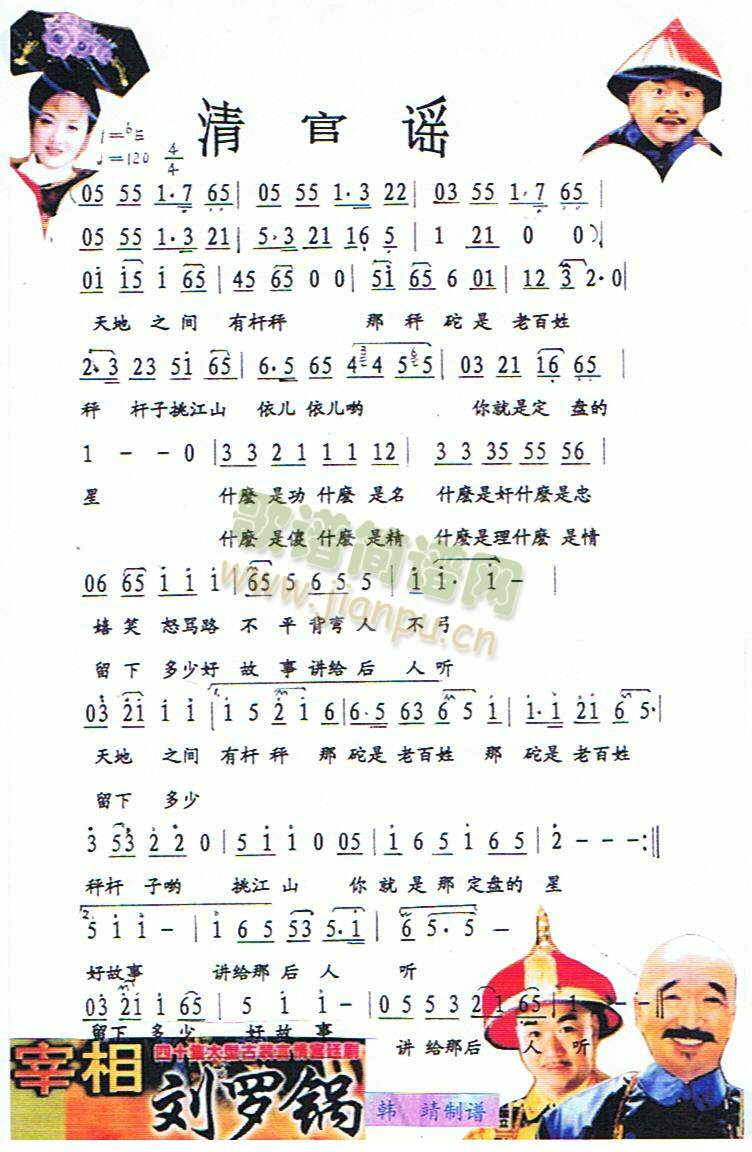 清官谣
1=♭E
♩=120 4/4
(05 55 1·7 65 | 05 55 1·3 22 | 03 55 1·7 65 |
05 55 1·3 21 | 5·3 21 16 5 | 1 21 0 0) |
01 15 1 65 | 45 65 0 0 | 51 65 6 01 | 12 3 2·0 |
天地 之 间 有杆秤 那 秤 砣 是 老百姓
2·3 23 51 65 | 6·5 65 4 34 5 65 | 03 21 16 65 |
秤 杆子挑江山 依儿 依儿哟 你就是定 盘的
1 - - 0 | 3 3 2 1 1 1 12 | 3 3 35 55 56 |
星 什麽 是功 什麽 是名 什麽是奸什麽是忠
什麽 是傻 什麽 是精 什麽是理什麽 是情
歌谱简谱网
www.jianpu.cn
06 65 1 1 1 | 65 5 6 5 5 | 1 1· 1 - |
嬉 笑 怒骂路 不 平 背弯 人 不 弓
留 下 多少好 故 事 讲给 后 人 听
03 21 1 1 | 1. 1 5 2 1 6 | 6·5 63 6 5 1 | 1·1 21 6 5· |
天地 之间 有杆 秤 那 砣是 老百姓 那 砣是老百姓
留下 多少
3 53 2 2 0 | 5 1 1 0 05 | 1 6 5 1 6 5 | 2 - - - :||
秤杆 子哟 挑江 山 你 就 是 那 定盘的 星
2. 5 1 1 - | 1 6 5 53 5·1 | 6 5·5 -
好故事 讲给那 后 人 听
03 21 1 65 | 5 1 1 - | 0 5 5 3 2 1 65 | 1 - - - ||
留下 多 少 好 故 事 讲 给那后 人 听
四十集大型古装言情宫廷剧
宰相
刘罗锅
韩 靖制谱